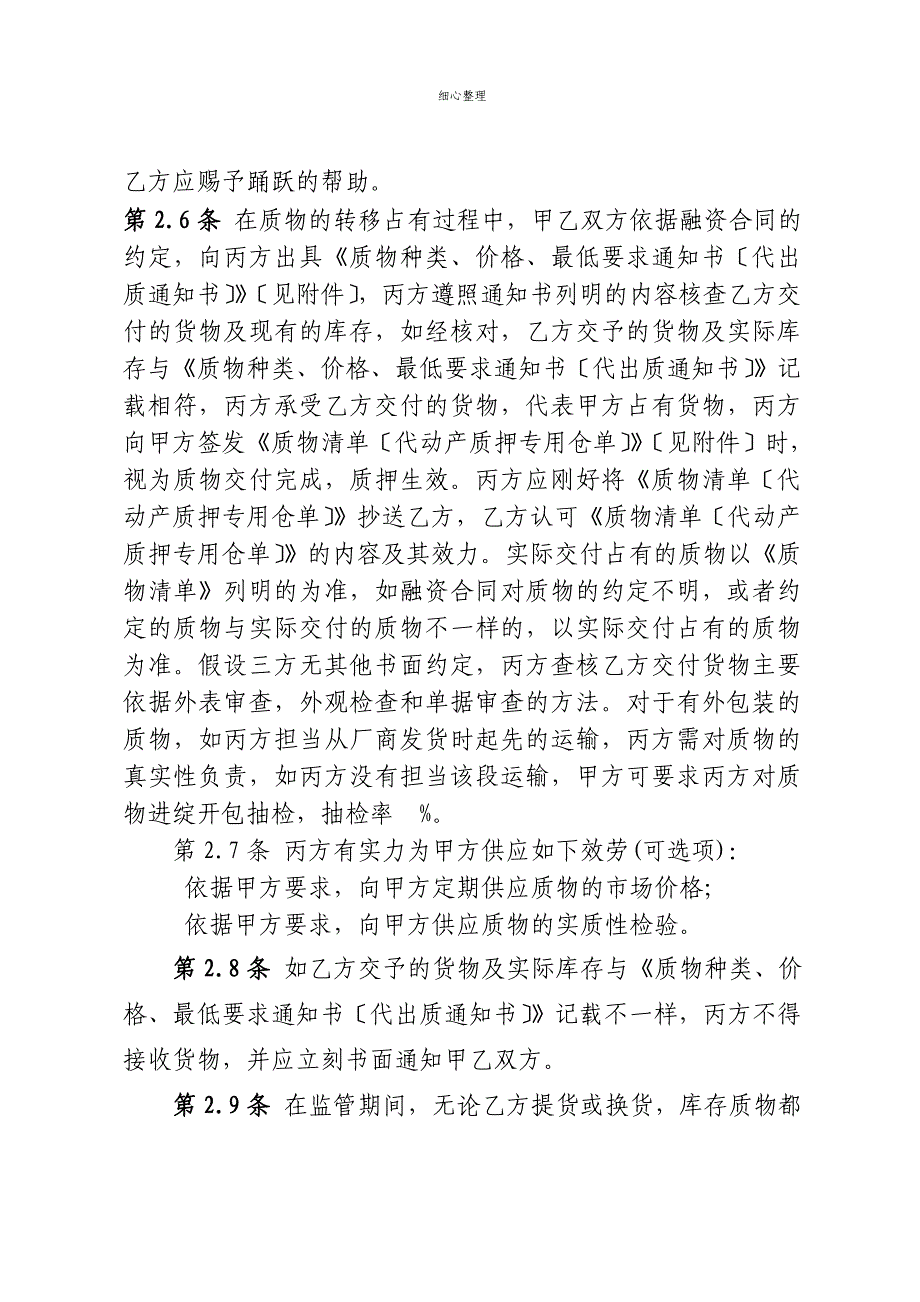 细心整理
乙方应赐予踊跃的帮助。
第2.6条 在质物的转移占有过程中，甲乙双方依据融资合同的
约定，向丙方出具《质物种类、价格、最低要求通知书〔代出
质通知书〕》〔见附件〕，丙方遵照通知书列明的内容核查乙方交
付的货物及现有的库存，如经核对，乙方交予的货物及实际库
存与《质物种类、价格、最低要求通知书〔代出质通知书〕》记
载相符，丙方承受乙方交付的货物，代表甲方占有货物，丙方
向甲方签发《质物清单〔代动产质押专用仓单〕》〔见附件〕时，
视为质物交付完成，质押生效。丙方应刚好将《质物清单〔代
动产质押专用仓单〕》抄送乙方，乙方认可《质物清单〔代动产
质押专用仓单〕》的内容及其效力。实际交付占有的质物以《质
物清单》列明的为准，如融资合同对质物的约定不明，或者约
定的质物与实际交付的质物不一样的，以实际交付占有的质物
为准。假设三方无其他书面约定，丙方查核乙方交付货物主要
依据外表审查，外观检查和单据审查的方法。对于有外包装的
质物，如丙方担当从厂商发货时起先的运输，丙方需对质物的
真实性负责，如丙方没有担当该段运输，甲方可要求丙方对质
物进绽开包抽检，抽检率 %。
第2.7条 丙方有实力为甲方供应如下效劳(可选项)：
依据甲方要求，向甲方定期供应质物的市场价格；
依据甲方要求，向甲方供应质物的实质性检验。
第2.8条 如乙方交予的货物及实际库存与《质物种类、价
格、最低要求通知书〔代出质通知书〕》记载不一样，丙方不得
接收货物，并应立刻书面通知甲乙双方。
第2.9条 在监管期间，无论乙方提货或换货，库存质物都